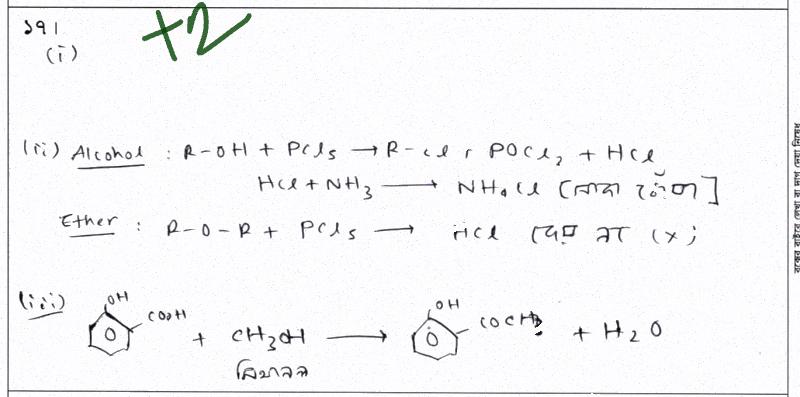 ১৭।
+2
(i)
(ii) Alcohol : R-OH + PCl5 → R-Cl + POCl2 + HCl
HCl + NH3 → NH4Cl [সাদা ধোঁয়া]
Ether : R-O-R + PCl5 → HCl দেয় না (x)
(iii)
OH
COOH + CH3OH →
OH
COCH3 + H2O
মিথানল